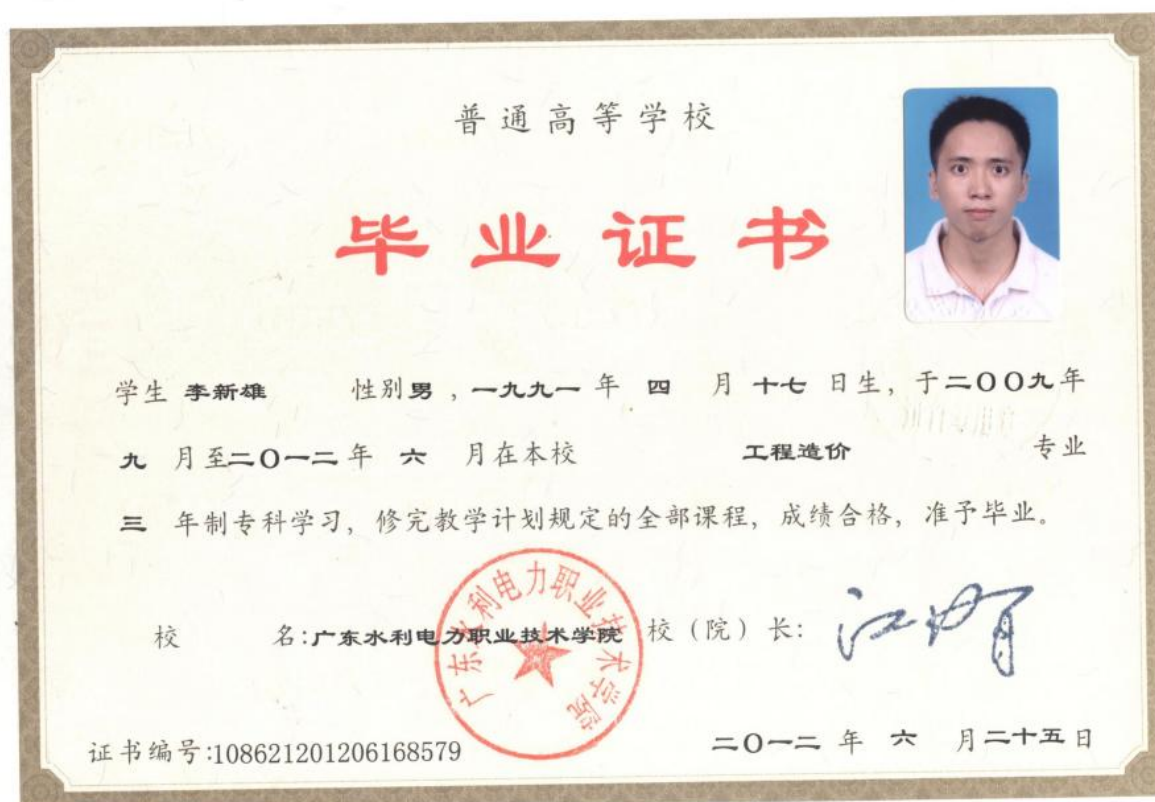 普通高等学校
毕业证书
学生 李新雄 性别 男 , 一九九一 年 四 月 十七 日生, 于 二〇〇九 年
九 月至 二〇一二 年 六 月在本校 工程造价 专业
三 年制专科学习, 修完教学计划规定的全部课程, 成绩合格, 准予毕业。
校 名:广东水利电力职业技术学院 校(院)长:
广东水利电力职业技术学院
证书编号:108621201206168579
二〇一二 年 六 月 二十五 日